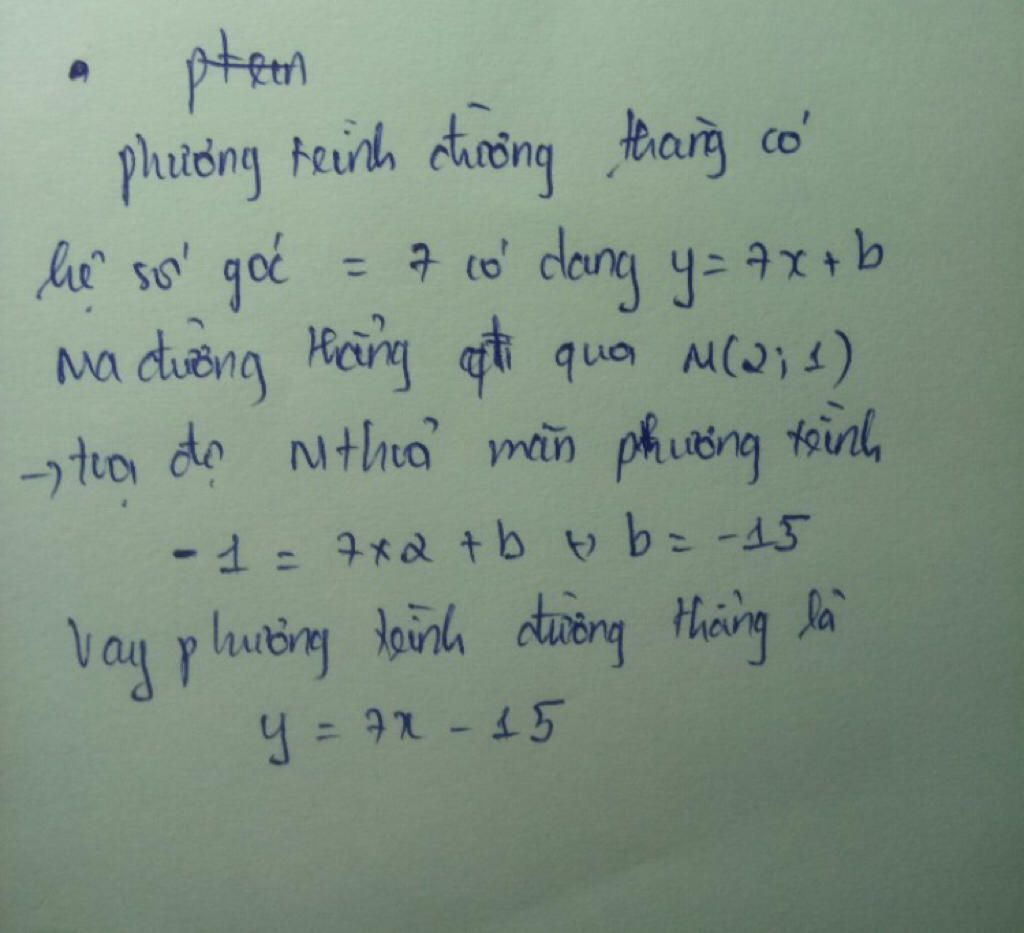 phương trình đường thằng có
hệ số góc = 7 có dang y = 7x + b
Ma đường thẳng đi qua M(2; 1)
→ toạ độ M thoả mãn phương trình
- 1 = 7 x 2 + b ⇔ b = -15
Vay phương trình đường thẳng là
y = 7x - 15